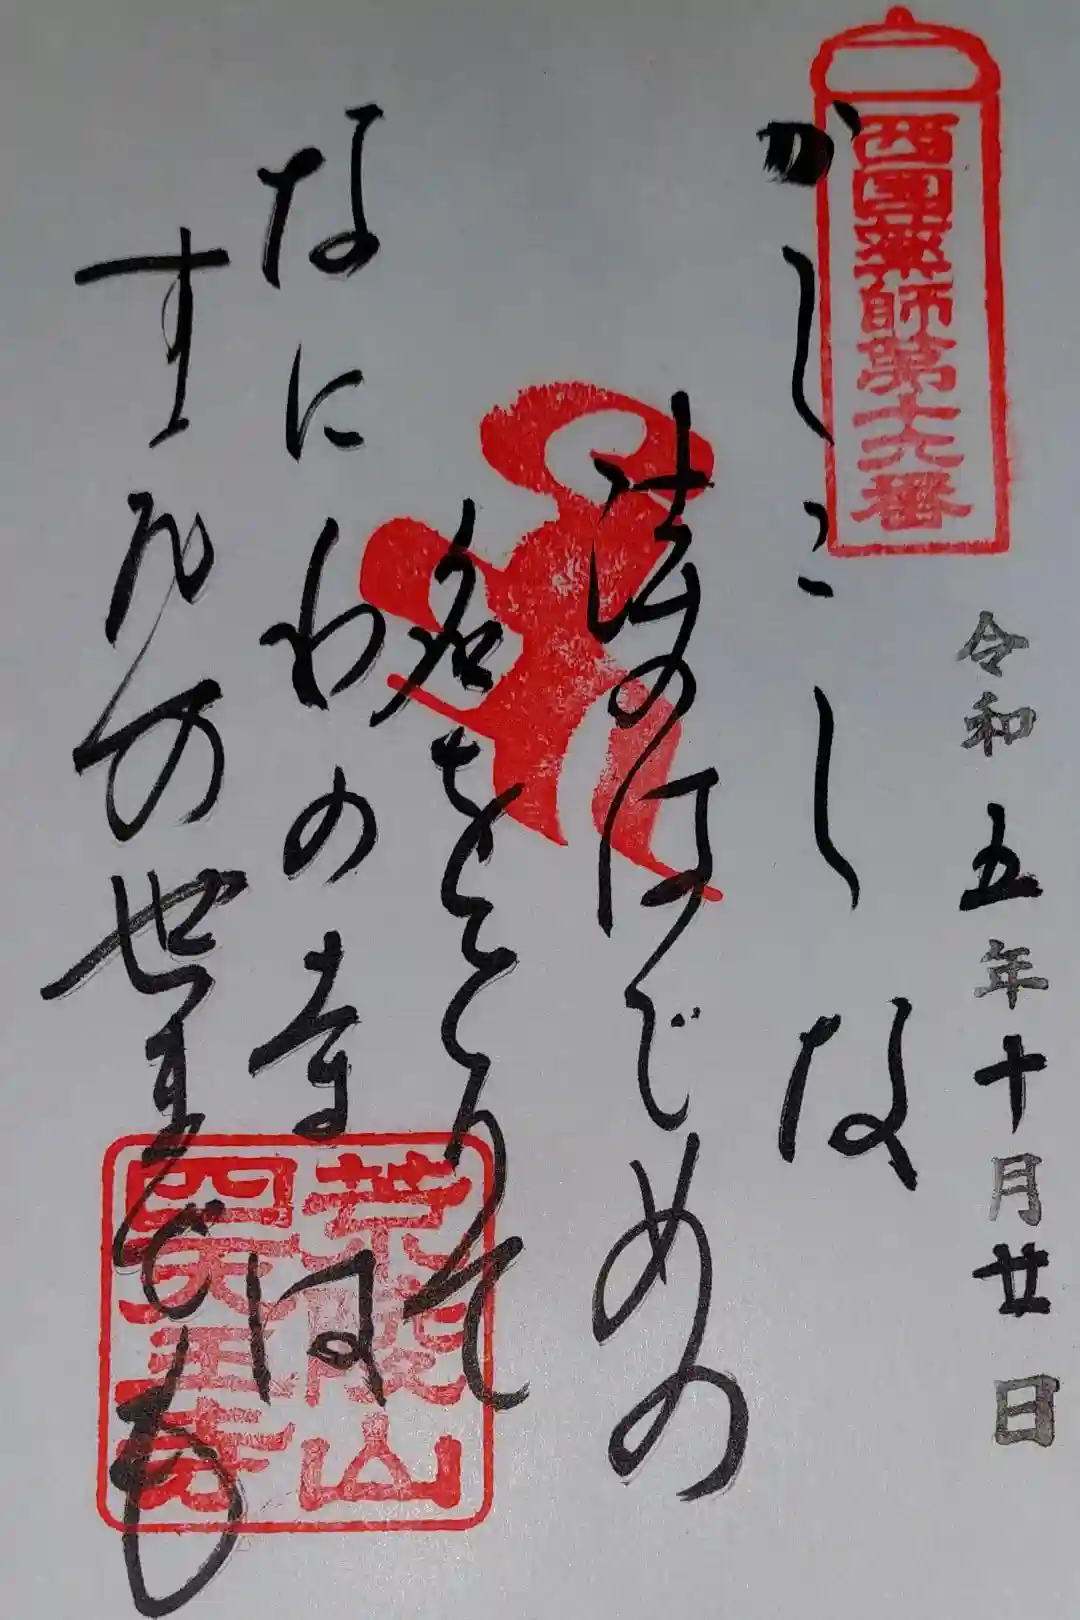 西國薬師第十六番
令和五年十月廿日
かしこしな
法のはじめの
名を
なにわの寺は
すゑの世までも
荒陵山
四天王寺